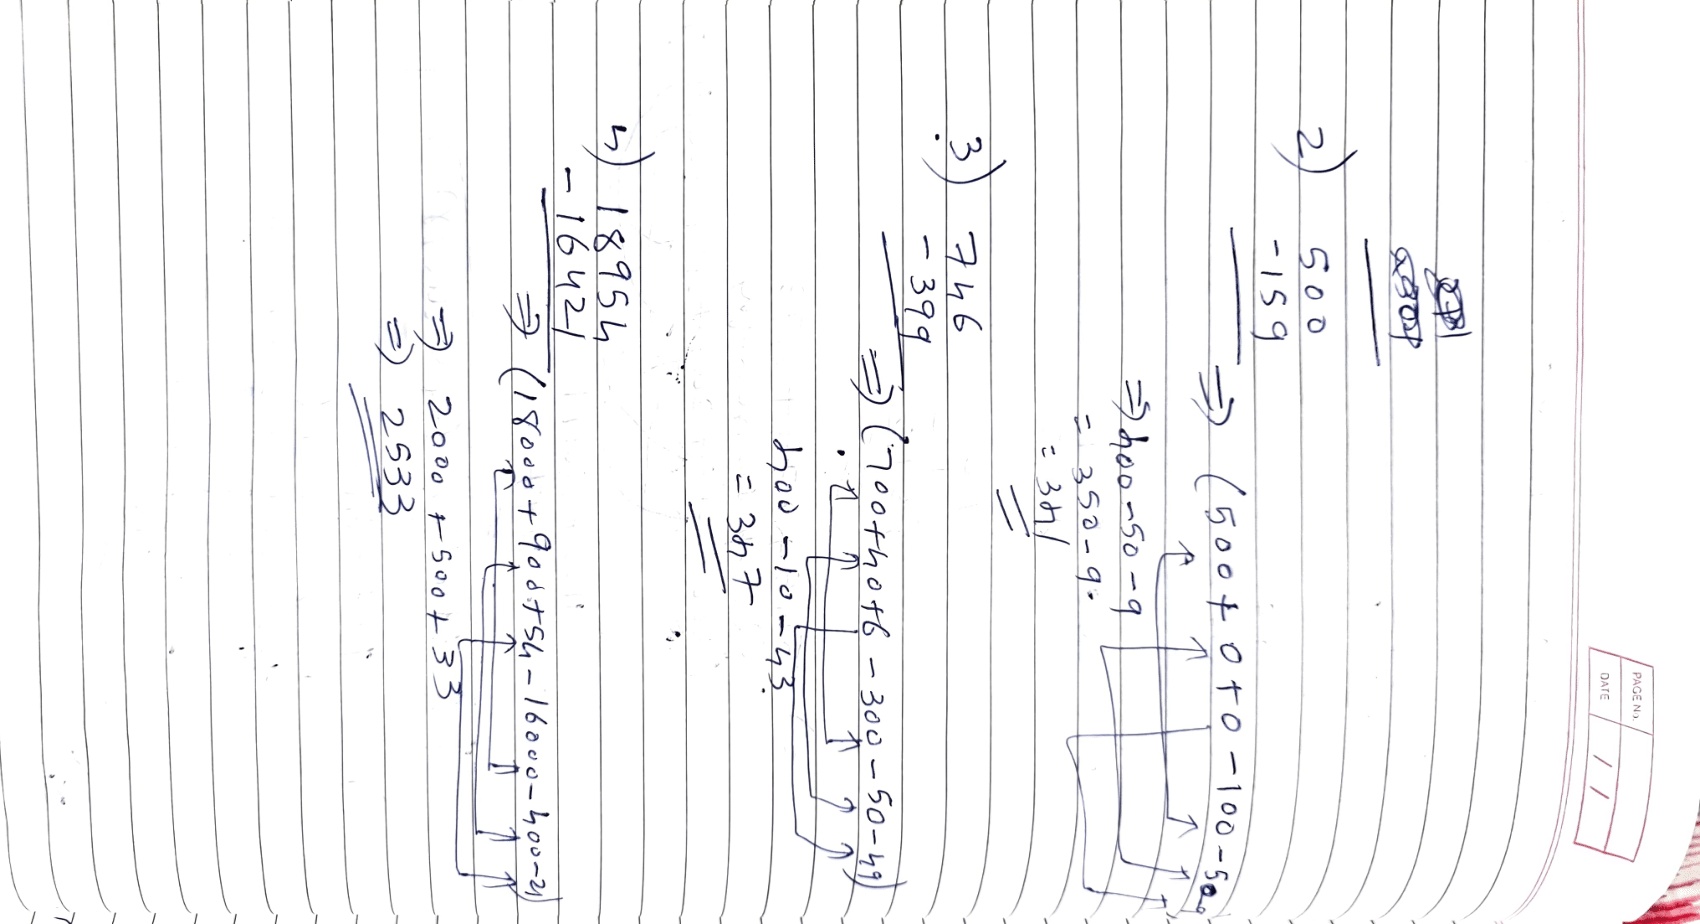 PAGE No.
DATE / /
2) 500
-159
⇒ (500+0+0-100-50-9
⇒ 400-50-9
= 350-9.
= 341
3) 746
-399
⇒ (700+40+6-300-50-49)
400-10-43
= 347
4) 18954
-16421
⇒ (18000+900+54-16000-400-21)
⇒ 2000+500+33
⇒ 2533